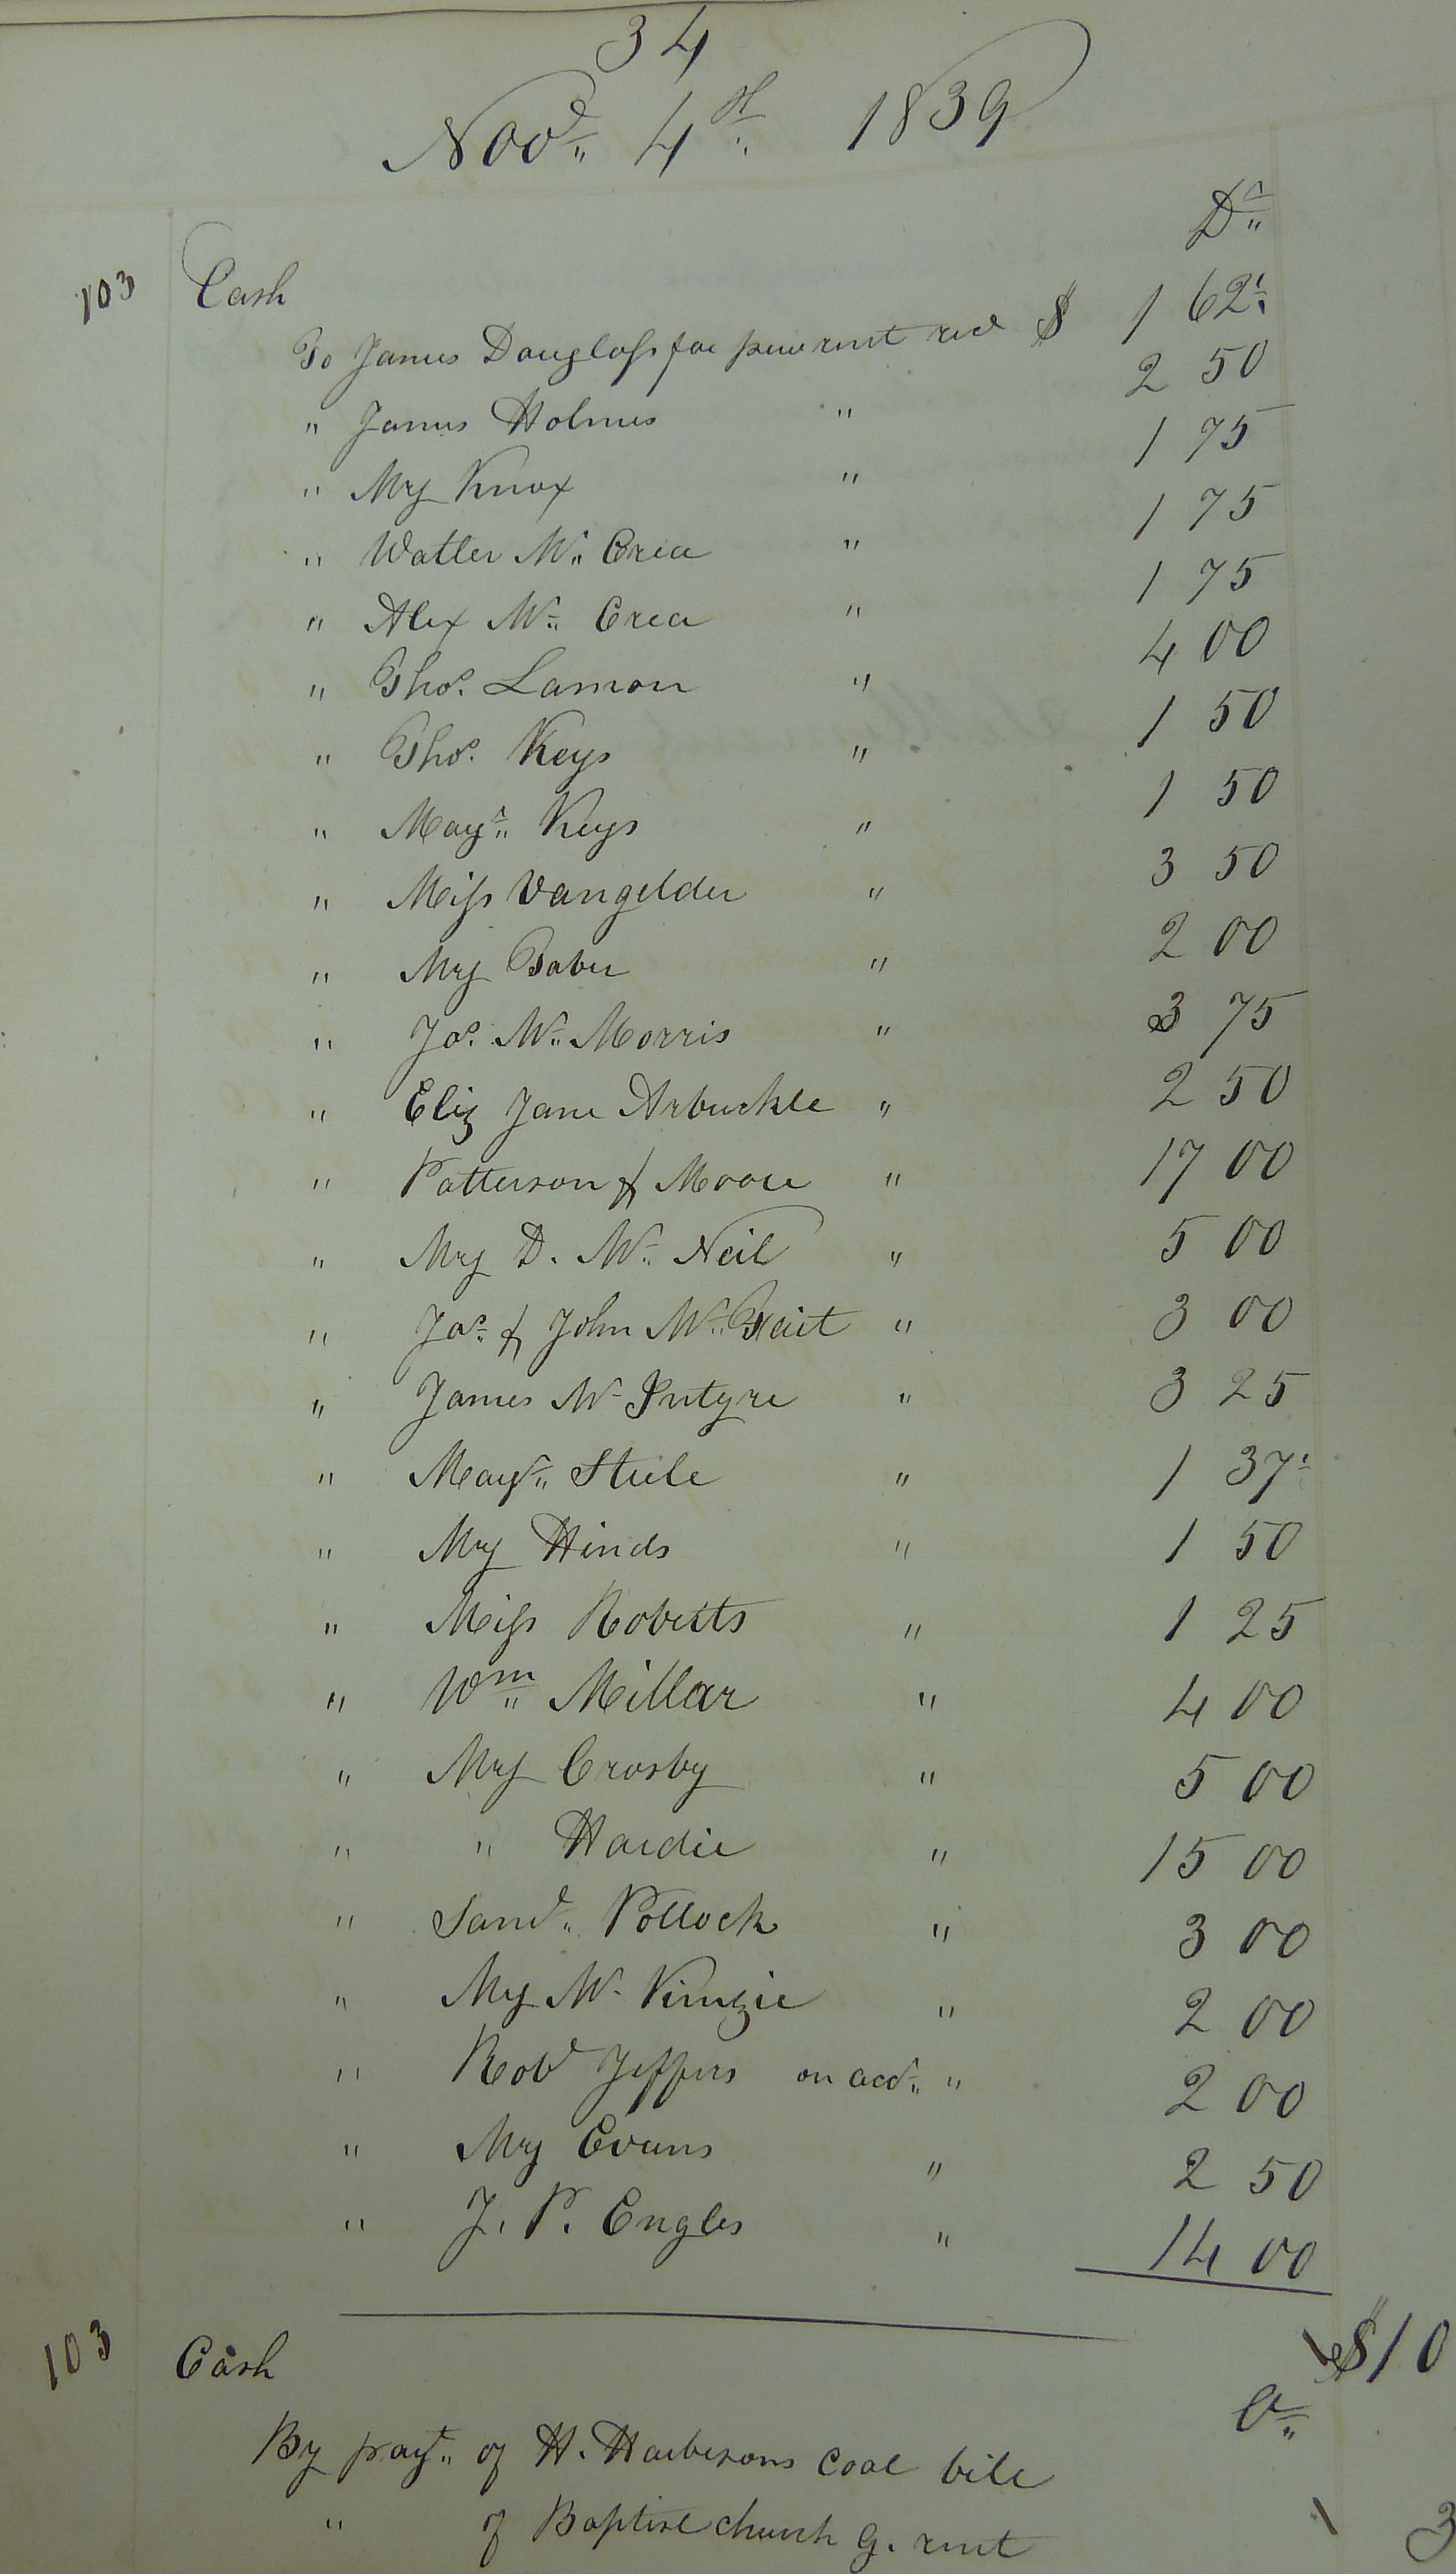 34
Novr 4th 1839
Dr
103 Cash
To James Douglass for pew rent recd $ 1 62½
" James Holmes " 2 50
" Mrs Knox " 1 75
" Walter Mc Crea " 1 75
" Alex Mc Crea " 1 75
" Thos. Lamon " 4 00
" Thos. Keys " 1 50
" Magt. Keys " 1 50
" Miss Vangelder " 3 50
" Mrs Baber " 2 00
" Jos. Mc Morris " 3 75
" Eliz Jane Arbuckle " 2 50
" Patterson & Moore " 17 00
" Mrs D. Mc Neil " 5 00
" Jas. & John Mc Tait " 3 00
" James Mc Intyre " 3 25
" Magt. Steele " 1 37½
" Mrs Hinds " 1 50
" Miss Roberts " 1 25
" Wm Millar " 4 00
" Mrs Crosby " 5 00
" " Hardie " 15 00
" Saml. Pollock " 3 00
" Mrs Mc Kinzie " 2 00
" Robt Jeffers on acct. " 2 00
" Mrs Evans " 2 50
" J. P. Engles " 14 00
$10
103 Cash
Cr
By payt. of H. Harbesons Coal bill
" of Baptist church G. rent 3